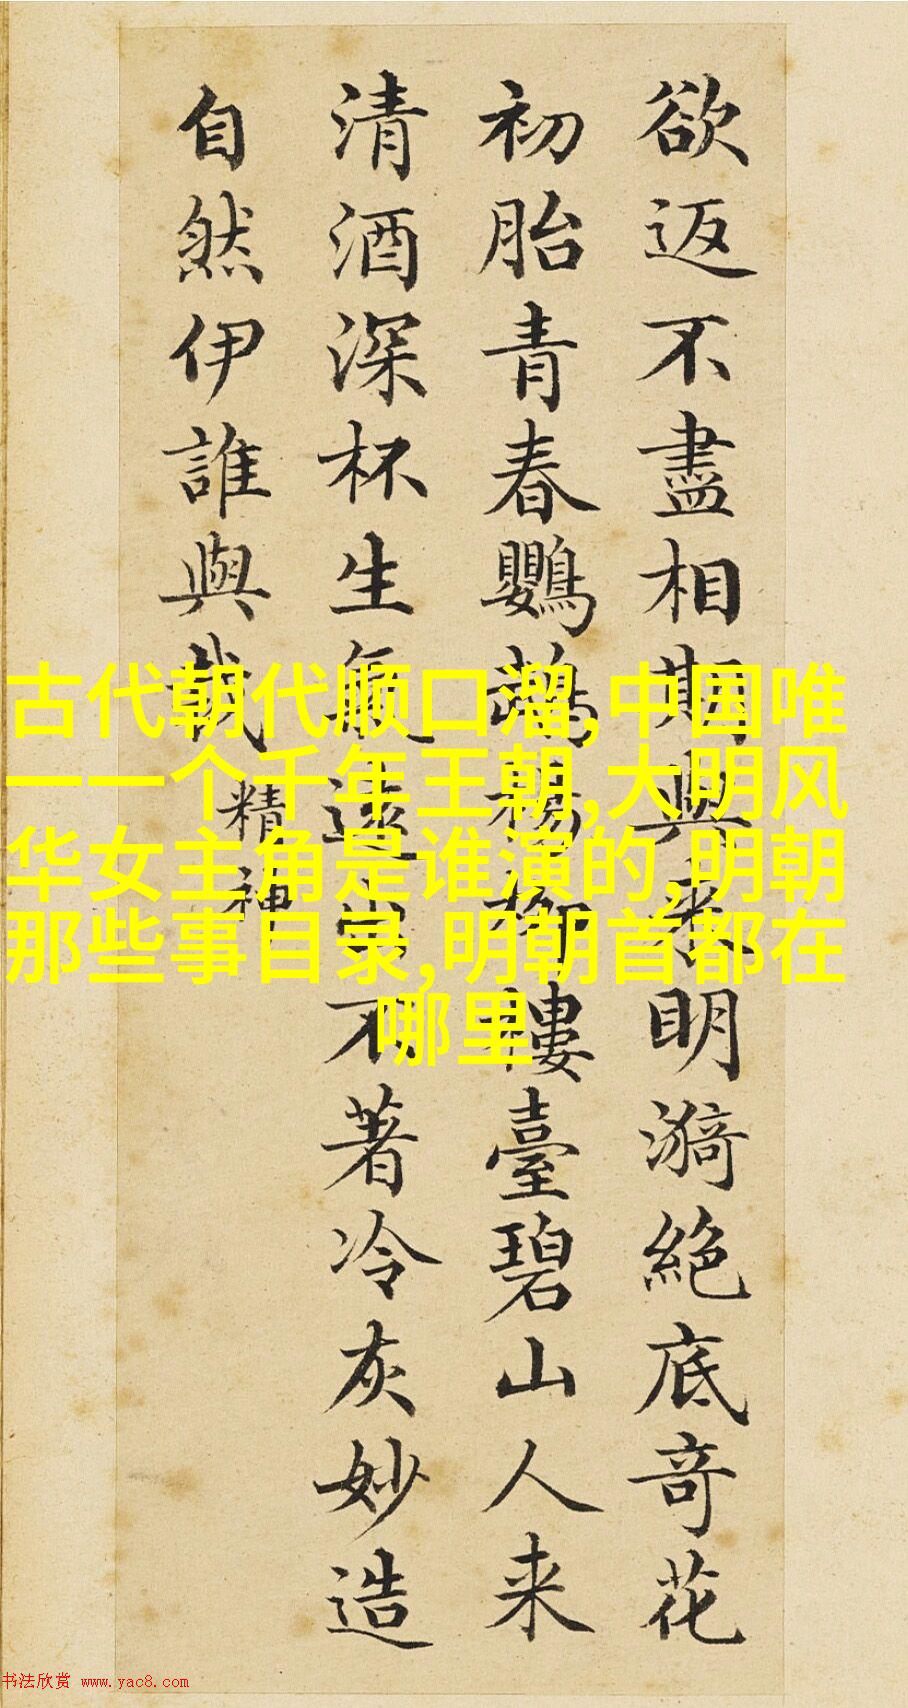 欲返不盡相期與來明漪絕底奇花
初胎青春鸚鵡楊柳樓臺碧山人来
清酒深杯生氣遠出不著冷灰妙造
自然伊誰與裁
精神
古代朝代顺口溜,中国唯
一一个千年王朝,大明风
华女主角是谁演的,明朝
那些事目录,明朝首都在
哪里
书法欣赏 www.yac8.com